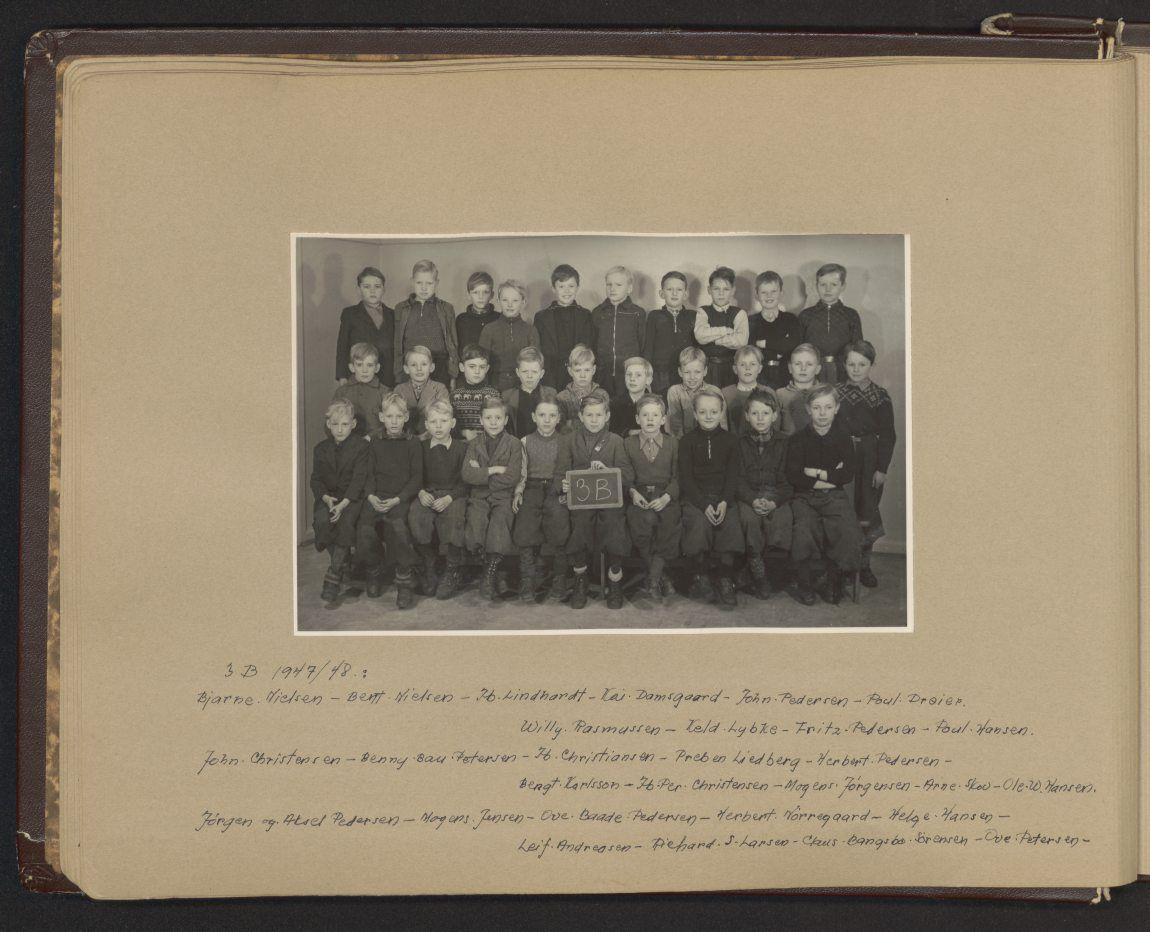 3B
3 B 1947/48.:
Bjarne. Nielsen – Bent. Nielsen – Ib. Lindhardt – Kai. Damsgaard – John. Pedersen – Poul. Dreier.
Willy. Rasmussen – Keld. Lybke – Fritz. Pedersen – Poul. Hansen.
John. Christensen – Benny. Bau. Petersen – Ib. Christiansen – Preben Liedberg – Herbert. Pedersen –
Bengt. Karlsson – Ib. Per. Christensen – Mogens. Jörgensen – Arne. Skov – Ole. W. Hansen.
Jörgen og. Aksel Pedersen – Mogens. Jensen – Ove. Baade. Pedersen – Herbert. Nörregaard – Helge. Hansen –
Leif. Andreasen – Richard. S. Larsen – Claus. Bangsbo. Sörensen – Ove. Petersen –